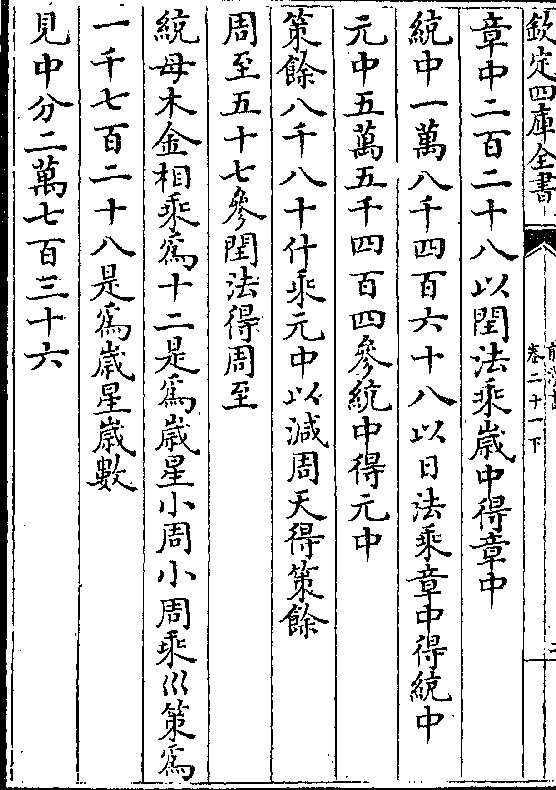 欽定四庫全書
卷二十一下
章中二百二十八以閏法乘嵗中得章中
統中一萬八千四百六十八以日法乘章中得統中
元中五萬五千四百四參統中得元中
策餘八千八十什乘元中以減周天得策餘
周至五十七參閏法得周至
統母木金相乘爲十二是爲嵗星小周小周乘巛策爲
一千七百二十八是爲嵗星嵗數
見中分二萬七百三十六